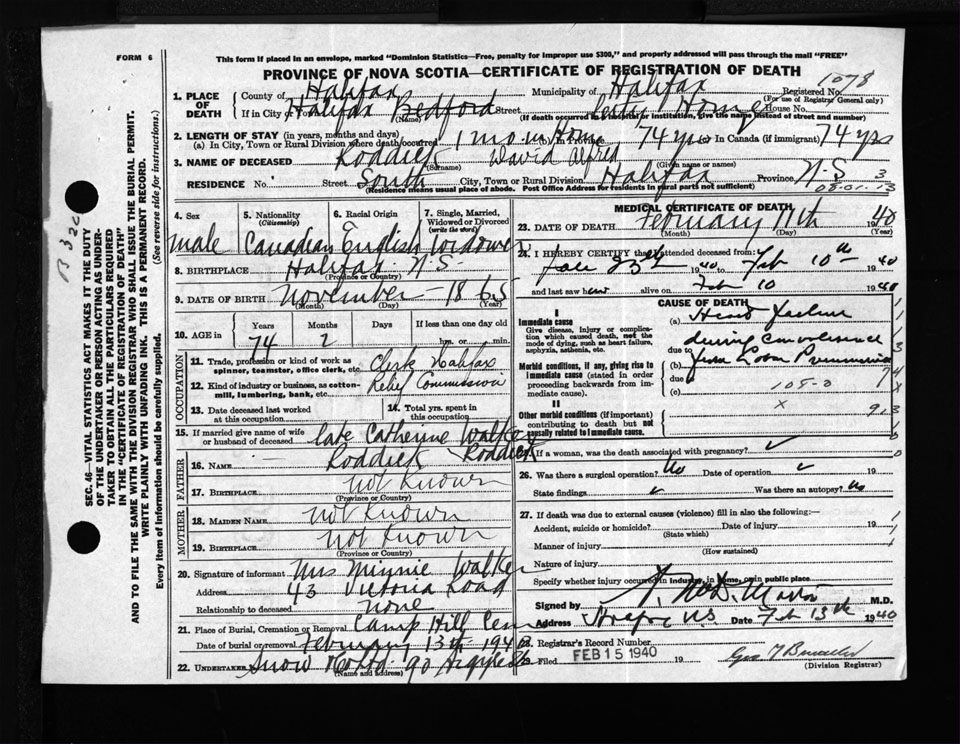 FORM 6
This form if placed in an envelope, marked "Dominion Statistics—Free, penalty for improper use $300," and properly addressed will pass through the mail "FREE"
PROVINCE OF NOVA SCOTIA—CERTIFICATE OF REGISTRATION OF DEATH
1078
1. PLACE OF DEATH
County of Halifax Municipality of Halifax Registered No.
(For use of Registrar General only)
If in City or Town Halifax Bedford Street House No.
(Name) (If death occurred in a hospital or institution, give the name instead of street and number)
Home
2. LENGTH OF STAY (in years, months and days)
(a) In City, Town or Rural Division where death occurred 1 mo in Home (b) In Province 74 yrs (c) In Canada (if immigrant) 74 yrs
3. NAME OF DECEASED Roddick David Alfred
(Surname) (Given name or names)
RESIDENCE No. Street South City, Town or Rural Division Halifax Province N.S. 3
(Residence means usual place of abode. Post Office Address for residents in rural parts not sufficient)
4. Sex
male
5. Nationality
(Citizenship)
Canadian
6. Racial Origin
English
7. Single, Married, Widowed or Divorced
(write the word)
Widower
8. BIRTHPLACE Halifax N.S.
(Province or Country)
9. DATE OF BIRTH November 1865
(Month) (Day) (Year)
10. AGE in
Years Months Days If less than one day old
74 2 hrs. or min.
OCCUPATION
11. Trade, profession or kind of work as spinner, teamster, office clerk, etc. Clerk Halifax
12. Kind of industry or business, as cotton-mill, lumbering, bank, etc. Relief Commission
13. Date deceased last worked at this occupation
14. Total yrs. spent in this occupation
15. If married give name of wife or husband of deceased late Catherine Walker Roddick
FATHER
16. NAME Roddick
17. BIRTHPLACE not known
(Province or Country)
MOTHER
18. MAIDEN NAME not known
19. BIRTHPLACE not known
(Province or Country)
20. Signature of informant Mrs Minnie Walker
Address 43 Victoria Road
Relationship to deceased none
21. Place of Burial, Cremation or Removal Camp Hill Cem
Date of burial or removal February 13th 1940
22. UNDERTAKER Snow & Co Ltd. 90 Argyle St
(Name and address)
MEDICAL CERTIFICATE OF DEATH
23. DATE OF DEATH February 11th 1940
(Month) (Day) (Year)
24. I HEREBY CERTIFY that I attended deceased from:
23th 19 to Feb 10th 1940
and last saw him alive on Feb 10 1940
CAUSE OF DEATH
I
Immediate cause
Give disease, injury or complication which caused death, not the mode of dying, such as heart failure, asphyxia, asthenia, etc.
(a) Heart Failure
during convalescence
due to from Lobar Pneumonia
Morbid conditions, if any, giving rise to immediate cause (stated in order proceeding backwards from immediate cause).
(b)
due to
(c) 108-0
II
Other morbid conditions (if important) contributing to death but not causally related to immediate cause.
25. If a woman, was the death associated with pregnancy?
26. Was there a surgical operation? No Date of operation
State findings Was there an autopsy? No
27. If death was due to external causes (violence) fill in also the following:—
Accident, suicide or homicide? Date of injury 19
(State which)
Manner of injury
(How sustained)
Nature of injury
Specify whether injury occurred in Industry, in home, or in public place
Signed by M.D.
Address Halifax N.S. Date Feb 13th 1940
28. Registrar's Record Number
29. Filed FEB 15 1940 19
(Division Registrar)
SEC. 46—VITAL STATISTICS ACT MAKES IT THE DUTY OF THE UNDERTAKER OR PERSON ACTING AS UNDERTAKER TO OBTAIN ALL THE PARTICULARS REQUIRED IN THE "CERTIFICATE OF REGISTRATION OF DEATH" AND TO FILE THE SAME WITH THE DIVISION REGISTRAR WHO SHALL ISSUE THE BURIAL PERMIT.
WRITE PLAINLY WITH UNFADING INK. THIS IS A PERMANENT RECORD.
Every item of information should be carefully supplied. (See reverse side for instructions.)